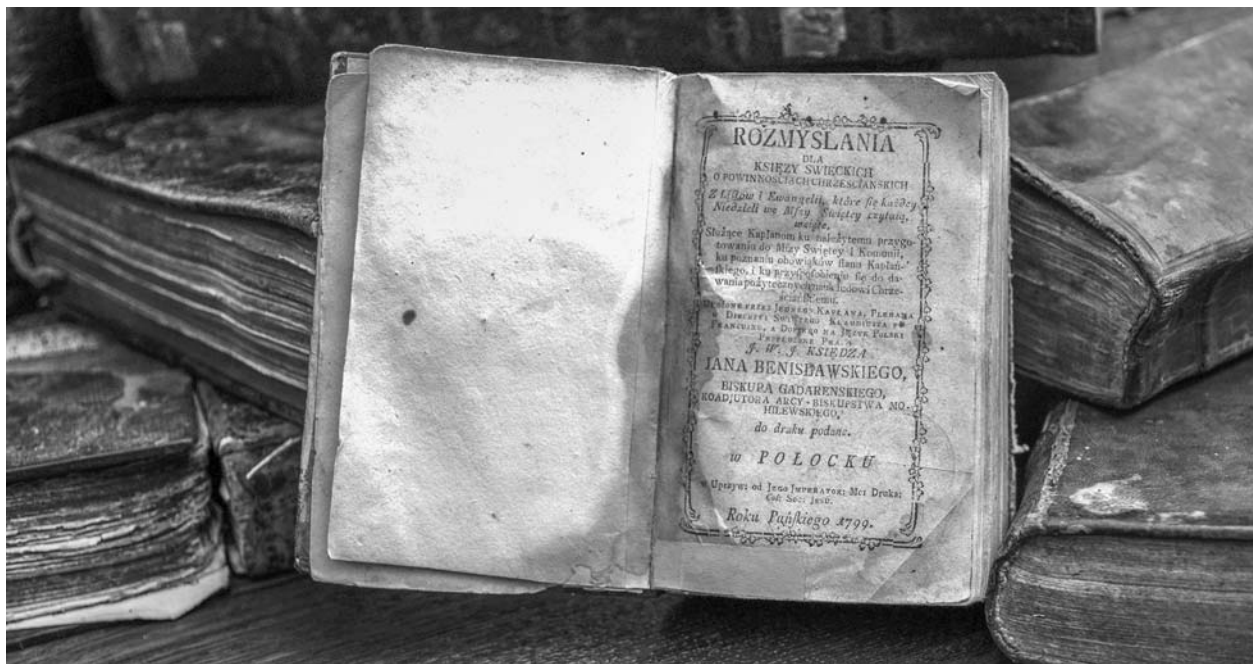 ROZMYSLANIA
DLA
KSIĘZY SWIECKICH
O POWINNOSCIACH CHRZESCIANSKICH
Z Listow i Ewangelii, ktore się każdey
Niedzieli we Mſzy Swiętey czytaią,
wzięte,
Służące Kapłanom ku należytemu przygo-
towaniu do Mſzy Swiętey i Komunii,
ku poznaniu obowiąkow ſtanu Kapłań-
ſkiego, i ku przyſpoſobieniu ſię do da-
wania pożytecznych nauk ludowi Chrze-
ściańſkiemu.
przez JEDNEGO KAPŁANA, PLEBANA
w DIECEZYI SWIĘTEGO KLAUDIUSZA PO
FRANCUZKU, A DOPIERO NA JĘZYK POLSKI
PRZEŁOŻONE
J. W. J. KSIĘDZA
JANA BENISŁAWSKIEGO,
BISKUPA GADARENSKIEGO,
KOADJUTORA ARCY-BISKUPSTWA MO-
HILEWSKIEGO,
do druku podane.
w POŁOCKU
w Uprzyw: od JEGO IMPERATOR: MCI Druka:
Col: Soc: Jeſu.
Roku Pańſkiego 1799.